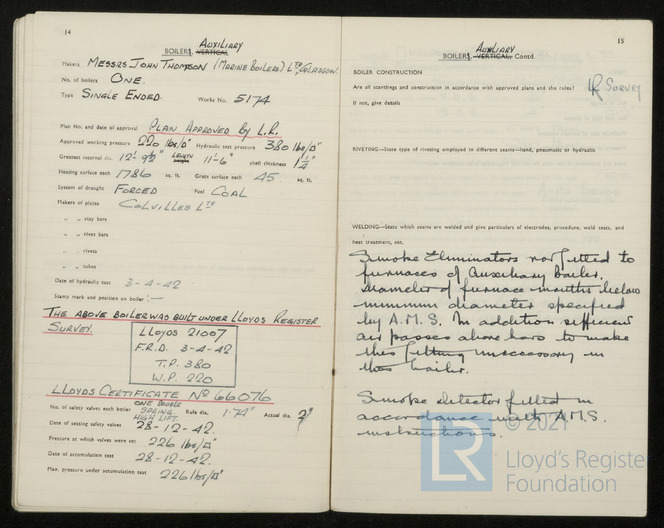 14
AUXILIARY
BOILERS, VERTICAL
Makers MESSRS JOHN THOMPSON (MARINE BOILERS) LTD GLASGOW.
No. of boilers ONE.
Type SINGLE ENDED. Works No. 5174
Plan No. and date of approval PLAN APPROVED BY L.R.
Approved working pressure 220 lbs/□" Hydraulic test pressure 380 lbs/□"
Greatest internal dia. 12'- LENGTH 11'-6" shell thickness
Heating surface each 1786 sq. ft. Grate surface each 45 sq. ft.
System of draught FORCED Fuel COAL
Makers of plates COLVILLES LTD
„ „ stay bars
„ „ rivet bars
„ „ rivets
„ „ tubes
Date of hydraulic test 3-4-42
Stamp mark and position on boiler :—
THE ABOVE BOILER WAS BUILT UNDER LLOYDS REGISTER
SURVEY.
LLOYDS 21007
F.R.D. 3-4-42
T.P. 380
W.P. 220
LLOYDS CERTIFICATE No 66076
No. of safety valves each boiler ONE DOUBLE SPRING HIGH LIFT Rule dia. 1.74" Actual dia. 2"
Date of setting safety valves 28-12-42.
Pressure at which valves were set 226 lbs/□"
Date of accumulation test 28-12-42.
Max. pressure under accumulation test 226 lbs/□"
15
AUXILIARY
BOILERS, VERTICAL. Contd.
BOILER CONSTRUCTION
Are all scantlings and construction in accordance with approved plans and the rules? LR SURVEY
If not, give details
RIVETING—State type of riveting employed in different seams—hand, pneumatic or hydraulic
WELDING—State which seams are welded and give particulars of electrodes, procedure, weld tests, and
heat treatment, etc.
Smoke Eliminators not fitted to
furnaces of Auxiliary Boiler.
Diameter of furnace mouths below
minimum diameter specified
by A.M.S. In addition sufficient
air passes above bars to make
this fitting unnecessary in
this boiler.
Smoke detector fitted in
accordance with A.M.S.
instructions.
LR
© 2021
Lloyd's Register
Foundation